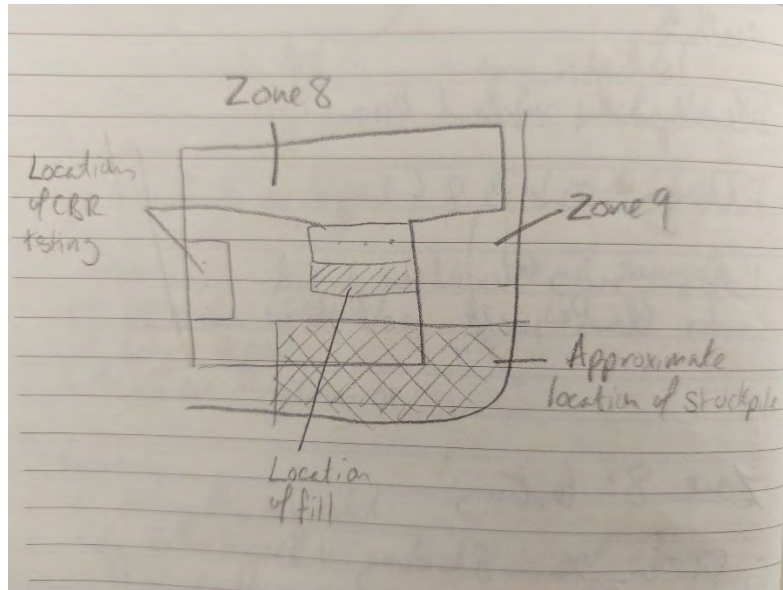 Zone 8
Locations
of CBR
testing
Zone 9
Approximate
location of stockpile
Location
of fill